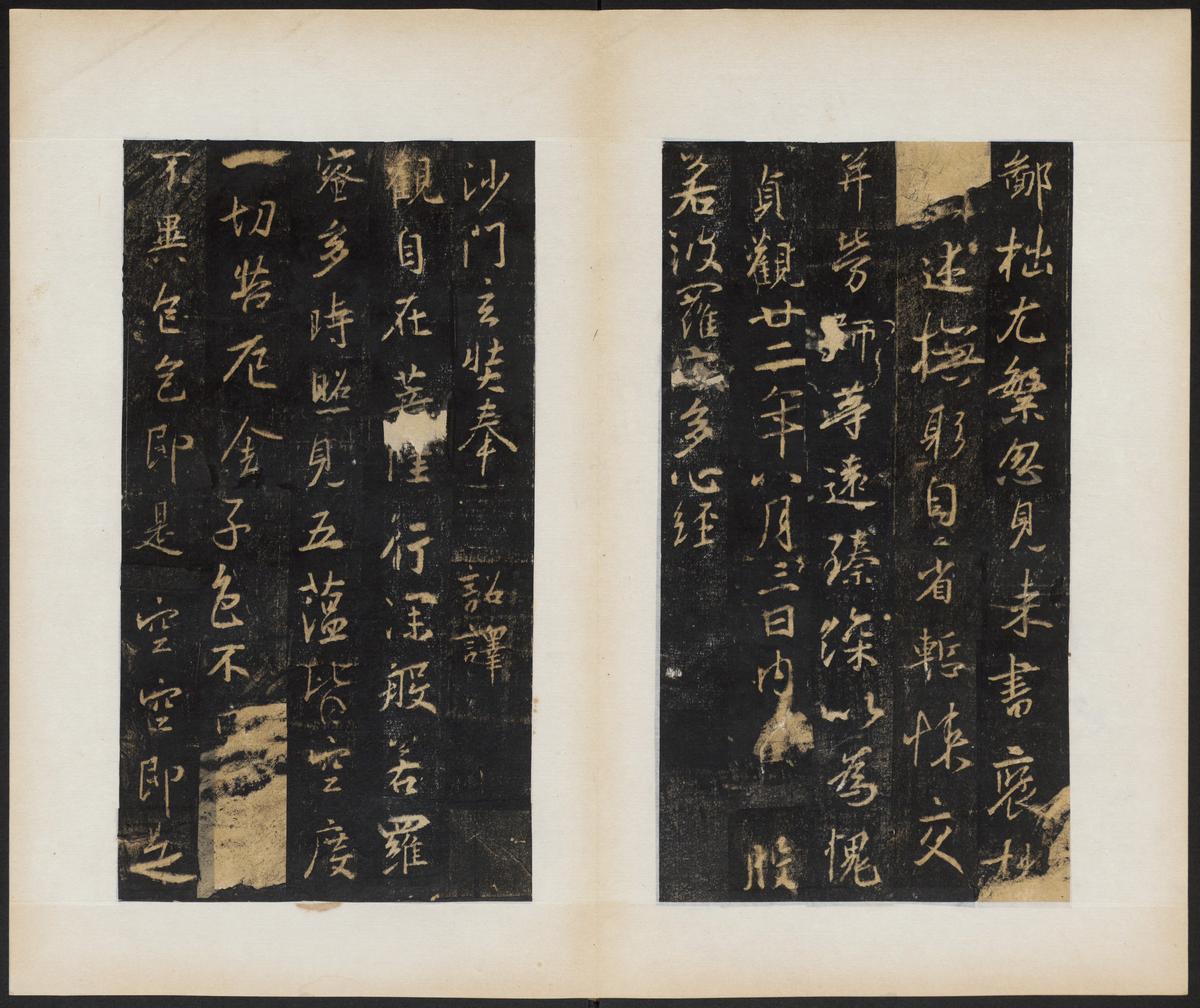 鄙拙尤繁忽見来書褒
述撫躬自省慙悚交
并勞師等遠臻深以為愧
貞觀廿二年八月三日內 般
若波羅蜜多心經
沙門玄奘奉 詔譯
觀自在菩薩行深般若羅
蜜多時照見五蘊皆空度
一切苦厄舍子色不
不異色色即是空空即是